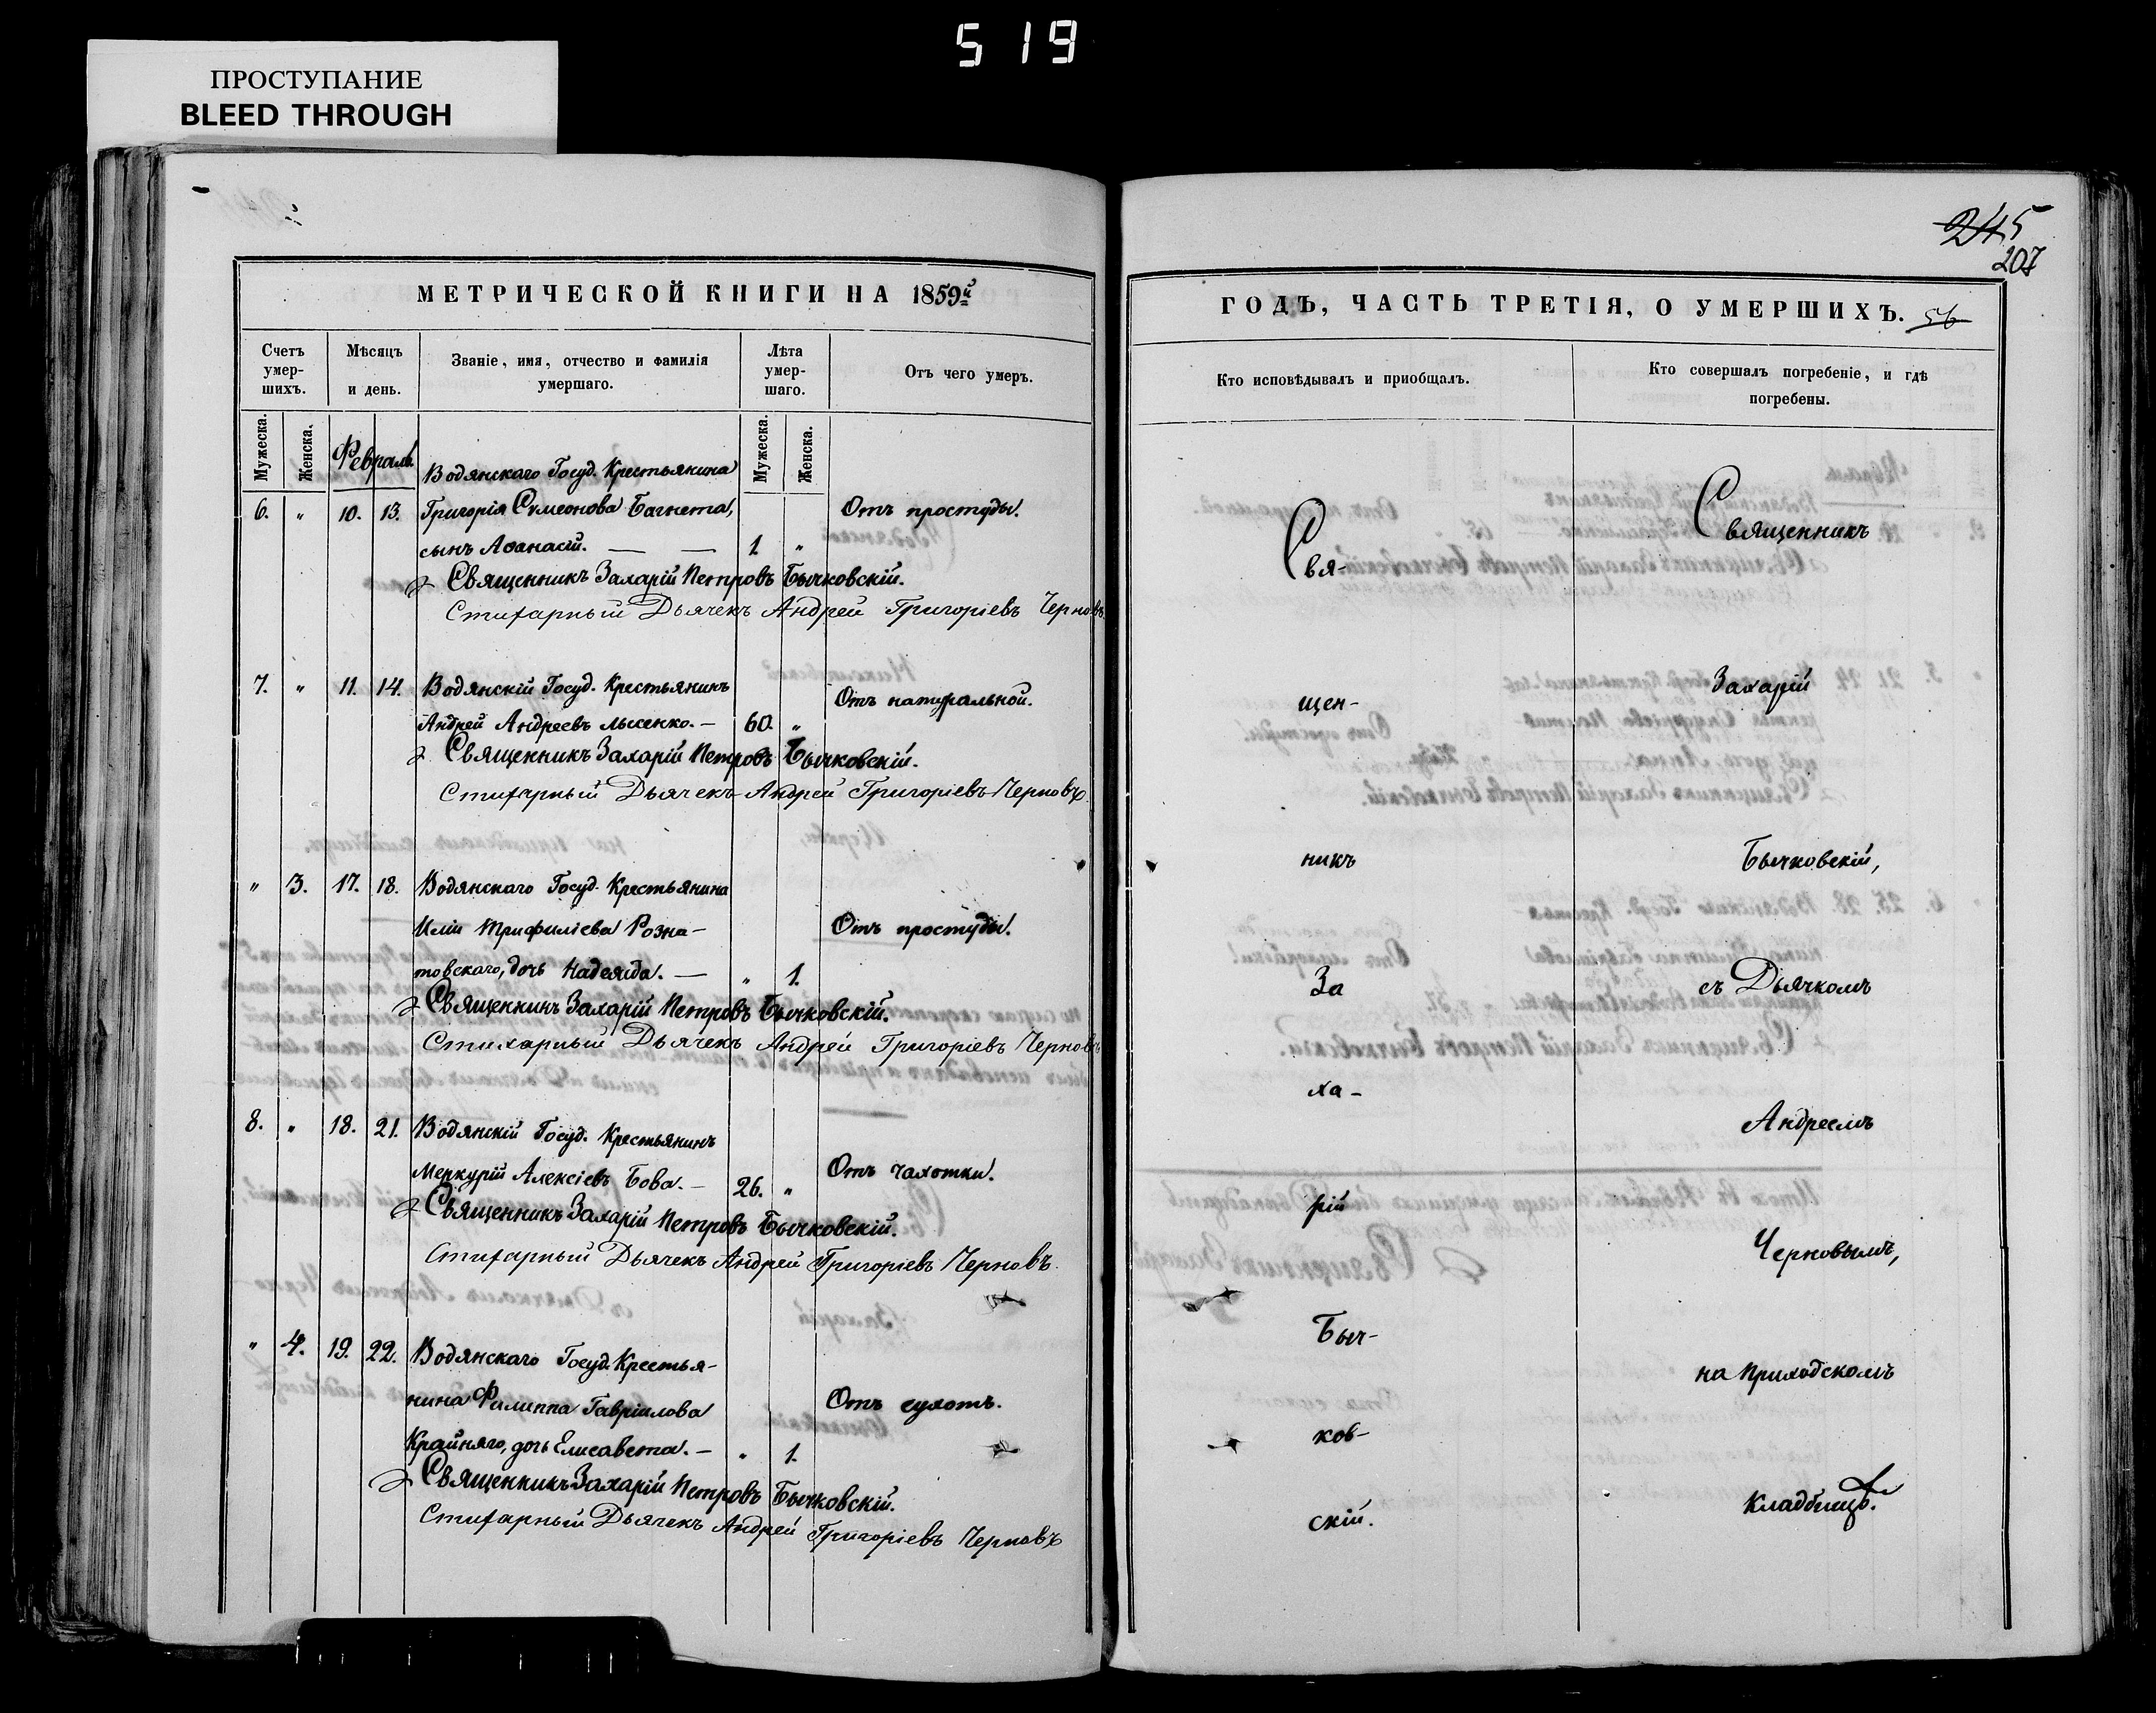 519
ПРОСТУПАНИЕ
BLEED THROUGH
МЕТРИЧЕСКОЙ КНИГИ НА 1859й
Счетъ умер-шихъ.
Мѣсяцъ и день.
Званіе, имя, отчество и фамилія умершаго.
Лѣта умер-шаго.
Отъ чего умеръ.
Мужеска. Женска. Мужеска. Женска.
Февраль.
Водянскаго Госуд. Крестьянина
6. " 10. 13. Григорія Симеонова Багнета, Отъ простуды.
сынъ Аѳанасій. — — 1 "
Священникъ Захарій Петровъ Бычковскій.
Стихарный Дьячекъ Андрей Григоріевъ Черновъ
7. " 11. 14. Водянскій Госуд. Крестьянинъ Отъ натуральной.
Андрей Андреевъ Лысенко. — 60. "
Священникъ Захарій Петровъ Бычковскій.
Стихарный Дьячекъ Андрей Григоріевъ Черновъ
" 3. 17. 18. Водянскаго Госуд. Крестьянина
Иліи Трифиліева Розна- Отъ простуды.
товскаго, дочь Надежда. — " 1.
Священникъ Захарій Петровъ Бычковскій.
Стихарный Дьячекъ Андрей Григоріевъ Черновъ
8. " 18. 21. Водянскій Госуд. Крестьянинъ
Меркурій Алексіевъ Бова. — 26. " Отъ чахотки.
Священникъ Захарій Петровъ Бычковскій.
Стихарный Дьячекъ Андрей Григоріевъ Черновъ.
" 4. 19. 22. Водянскаго Госуд. Крестья-
нина Филиппа Гавріилова Отъ сухотъ.
Крайняго, дочь Елисавета. — " 1.
Священникъ Захарій Петровъ Бычковскій.
Стихарный Дьячекъ Андрей Григоріевъ Черновъ
245
207
ГОДЪ, ЧАСТЬ ТРЕТІЯ, О УМЕРШИХЪ. 56
Кто исповѣдывалъ и пріобщалъ.
Кто совершалъ погребеніе, и гдѣ погребены.
Свя-
щен-
никъ
За
ха-
рій
Быч-
ков-
скій.
Священникъ
Захарій
Бычковскій,
съ Дьячкомъ
Андреемъ
Черновымъ,
на приходскомъ
кладбищѣ.